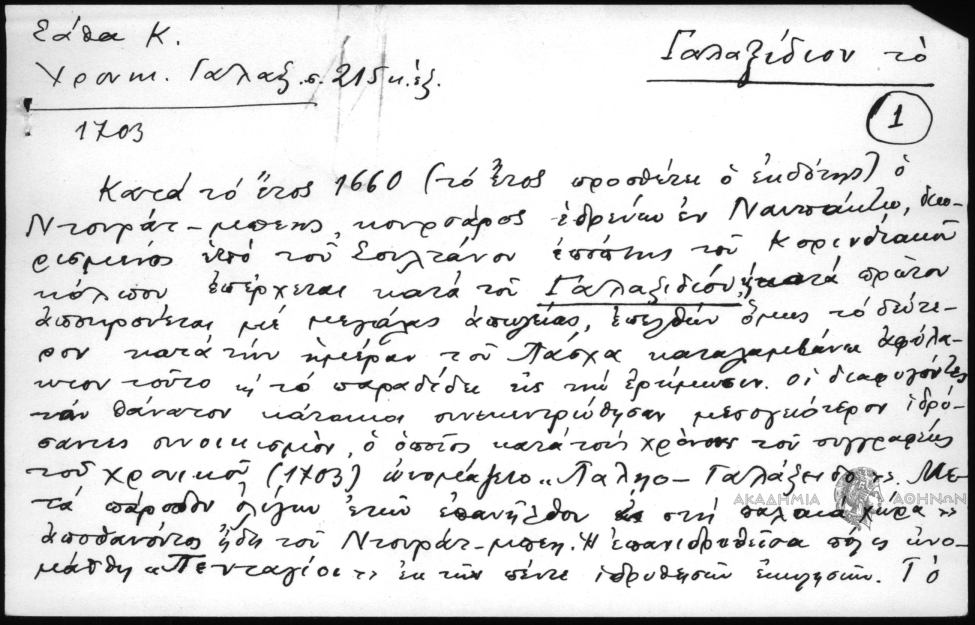 Σάθα Κ.
Χρονικ. Γαλαξ. σ. 215 κ.ἑξ.
Γαλαξίδιον τὸ
1703
1
Κατὰ τὸ ἔτος 1660 (τὸ ἔτος προσθέτει ὁ ἐκδότης) ὁ
Ντουράτ-μπεης, κουρσάρος ἑδρεύων ἐν Ναυπάκτῳ, διω-
ρισμένος ὑπὸ τοῦ Σουλτάνου ἐπόπτης τοῦ Κορινθιακοῦ
κόλπου ἐπέρχεται κατὰ τοῦ Γαλαξιδίου, κατὰ πρῶτον
ἀποκρούεται μὲ μεγάλας ἀπωλείας, ἐπελθὼν ὅμως τὸ δεύτε-
ρον κατὰ τὴν ἡμέραν τοῦ Πάσχα καταλαμβάνει ἀφύλα-
κτον τοῦτο κ̀ τὸ παραδίδει εἰς τὴν ἐρήμωσιν. Οἱ διαφυγόντες
τὸν θάνατον κάτοικοι συνεκεντρώθησαν μεσογειότερον ἱδρύ-
σαντες συνοικισμὸν, ὁ ὁποῖος κατὰ τοὺς χρόνους τοῦ συγγραφέως
τοῦ χρονικοῦ (1703) ὠνομάζετο "Παληο-Γαλάξειδο". Με-
τὰ πάροδον ὀλίγων ἐτῶν ἐπανῆλθον στὴ παλαιὰ χώρα"
ἀποθανόντος ἤδη τοῦ Ντουράτ-μπεη. Ἡ ἐπανιδρυθεῖσα πόλις ὠνο-
μάσθη "Πενταγίοι" ἐκ τῶν πέντε ἱδρυθεισῶν ἐκκλησιῶν. Τὸ
ΑΚΑΔΗΜΙΑ ΑΘΗΝΩΝ